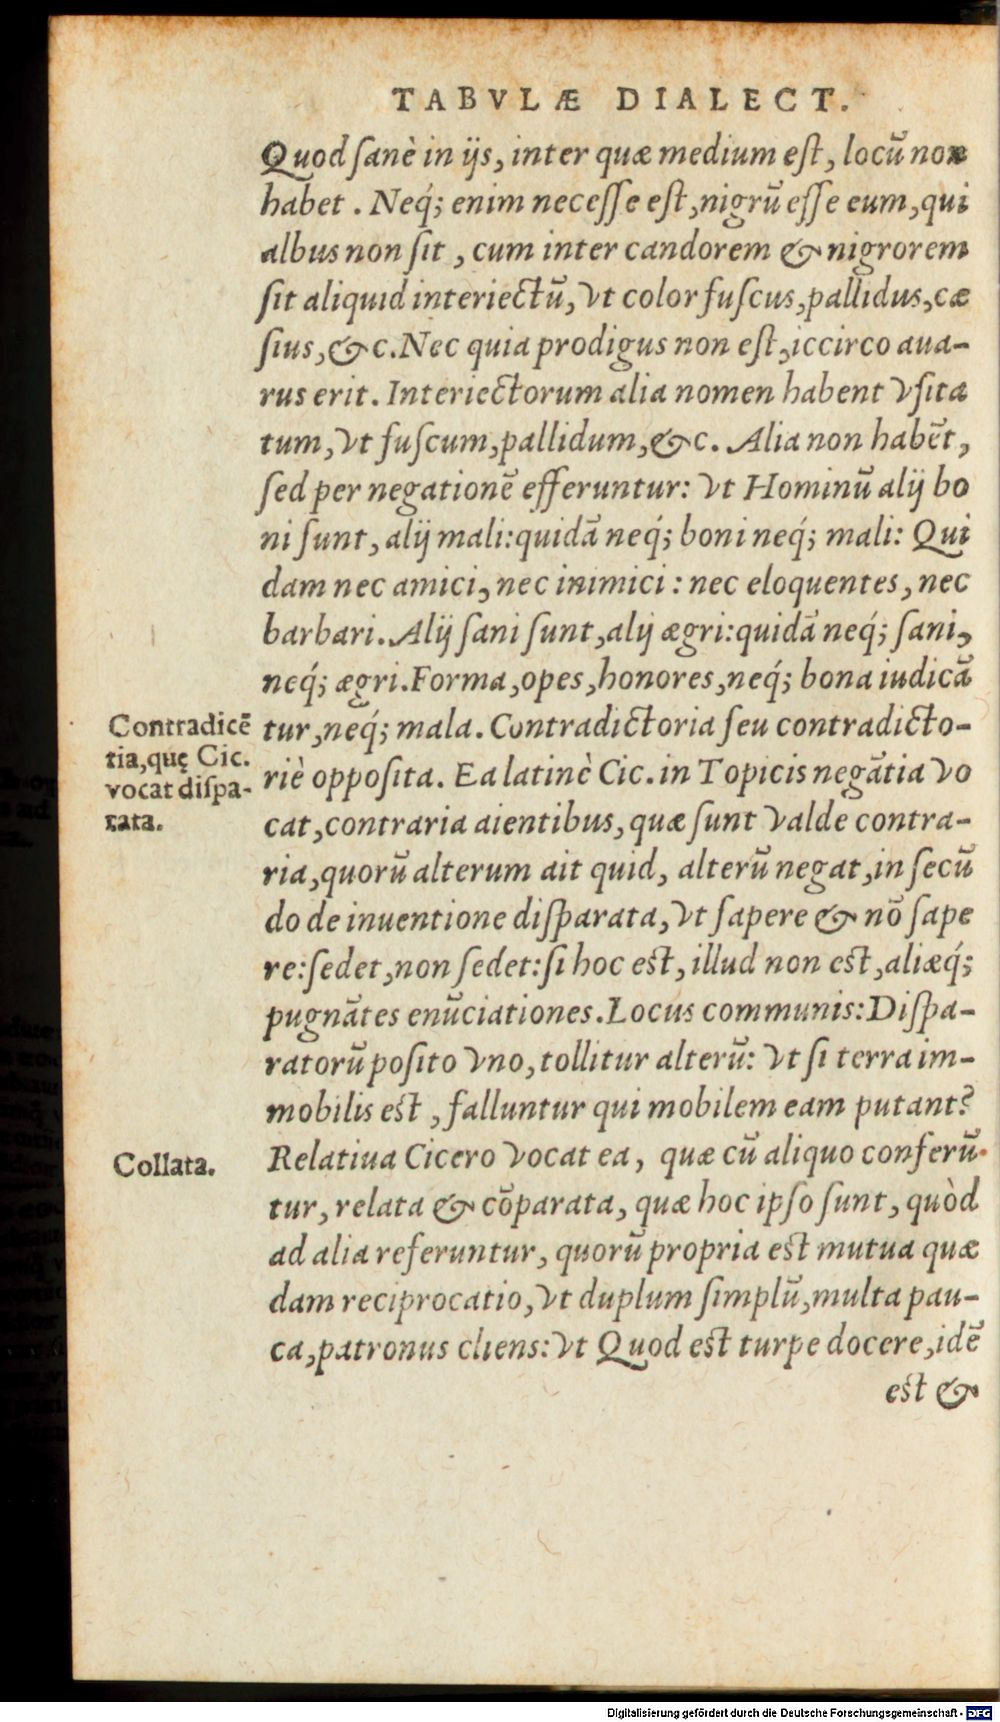 TABVLÆ DIALECT.
Quod sanè in ijs, inter quæ medium est, locũ non
habet. Neq́; enim necesse est, nigrũ esse eum, qui
albus non sit, cum inter candorem & nigrorem
sit aliquid interiectũ, vt color fuscus, pallidus, cæ
sius, &c. Nec quia prodigus non est, iccirco aua-
rus erit. Interiectorum alia nomen habent vsita
tum, vt fuscum, pallidum, &c. Alia non habẽt,
sed per negationẽ efferuntur: vt Hominũ alij bo
ni sunt, alij mali: quidã neq́; boni neq́; mali: Qui
dam nec amici, nec inimici: nec eloquentes, nec
barbari. Alij sani sunt, alij ægri: quidã neq́; sani,
neq́; ægri. Forma, opes, honores, neq́; bona iudicã
tur, neq́; mala. Contradictoria seu contradicto-
riè opposita. Ea latinè Cic. in Topicis negãtia vo
cat, contraria aientibus, quæ sunt valde contra-
ria, quorũ alterum ait quid, alterũ negat, in secũ
do de inuentione disparata, vt sapere & nõ sape
re: sedet, non sedet: si hoc est, illud non est, aliæq́;
pugnãtes enũciationes. Locus communis: Dispa-
ratorũ posito vno, tollitur alterũ: vt si terra im-
mobilis est, falluntur qui mobilem eam putant?
Relatiua Cicero vocat ea, quæ cũ aliquo conferũ
tur, relata & cõparata, quæ hoc ipso sunt, quòd
ad alia referuntur, quorũ propria est mutua quæ
dam reciprocatio, vt duplum simplũ, multa pau-
ca, patronus cliens: vt Quod est turpe docere, idẽ
est &
Contradicẽ
tia, quę Cic.
vocat dispa-
rata.
Collata.
Digitalisierung gefördert durch die Deutsche Forschungsgemeinschaft - DFG